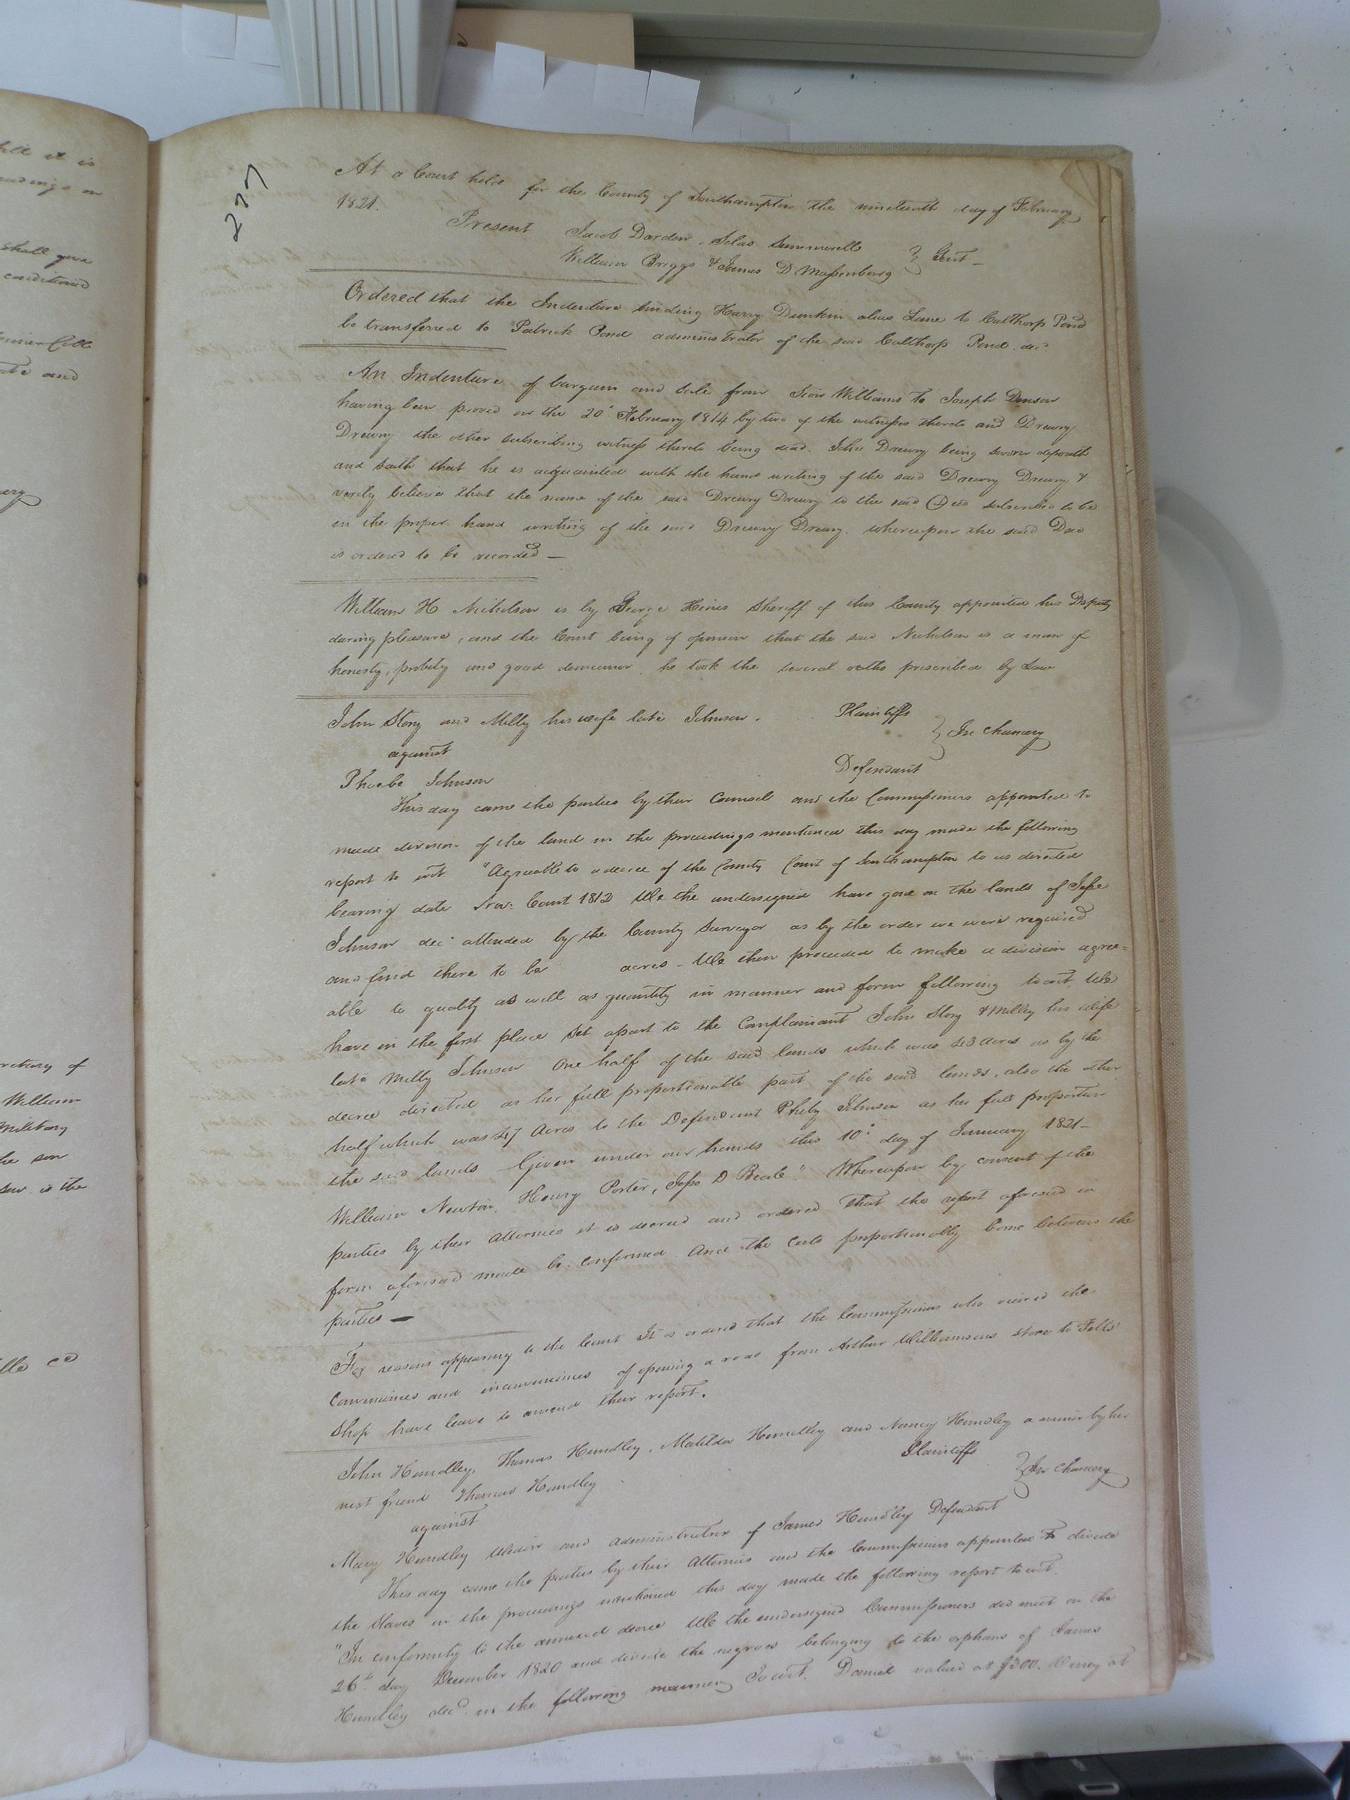 277
At a Court held for the County of Southampton the nineteenth day of February
1821.
Present Jacob Darden, Silas Summerell
William Briggs & James D Massenburg } Gent —
Ordered that the Indenture binding Harry Dunkin alias Lane to Calthorp Pond
be transferred to Patrick Pond administrator of the said Calthorp Pond decd
An Indenture of bargain and sale from Sion Williams to Joseph Denson
having been proved on the 20th February 1814 by two of the witnesses thereto and Drewry
Drewry the other subscribing witness thereto being dead. John Drewry being sworn deposeth
and saith that he is acquainted with the hand writing of the said Drewry Drewry &
verily believes that the name of the said Drewry Drewry to the said Deed subscribed to be
in the proper hand writing of the said Drewry Drewry. whereupon the said Deed
is ordered to be recorded —
William H Nicholson is by George Hines Sheriff of this County appointed his Deputy
during pleasure, and the Court being of opinion that the said Nicholson is a man of
honesty, probity and good demeanor he took the several oaths prescribed by Law
John Story and Milly his wife late Johnson. Plaintiffs
against } In Chancery
Phoebe Johnson Defendant
This day came the parties by their Counsel and the Commissioners appointed to
made division of the land in the proceedings mentioned this day made the following
report to wit "Agreeable to a decree of the County Court of Southampton to us directed
bearing date Nov: Court 1812 We the undersigned have gone on the lands of Jesse
Johnson decd attended by the County Surveyor as by the order we were required
and find there to be acres — We then proceeded to make a division agree=
able to quality as well as quantity in manner and form following towit, We
have in the first place set apart to the Complainant John Story & Milley his wife
late Milly Johnson One half of the said lands which was 43 acres as by the
decree directed as her full proportionable part of the said lands, also the other
half which was 47 Acres to the Defendant Pheby Johnson as her full proportion
the said lands Given under our hands this 10th day of January 1821 —
William Newton, Henry Porter, Jesse D Beale" Whereupon by consent of the
parties by their attornies it is decreed and ordered that the report aforesaid in
form aforesaid made be confirmed And the costs proportionally borne between the
parties —
For reasons appearing to the Court It is ordered that the Commissioners who viewed the
Conveniences and inconveniences of opening a road from Arthur Williamsons store to
Shop have leave to amend their report.
John Hundley, Thomas Hundley, Matilda Hundley and Nancy Hundley a minor by her
next friend Thomas Hundley Plaintiffs
against } In Chancery
Mary Hundley Widow and administratrix of James Hundley Defendant
This day came the parties by their Attornies and the Commissioners appointed to divide
the Slaves in the proceedings mentioned this day made the following report to wit.
"In conformity to the annexed decree We the undersigned Commissioners did meet on the
26th day December 1820 and divide the negroes belonging to the orphans of James
Hundley decd in the following manner, Towit. Daniel valued at $300. at